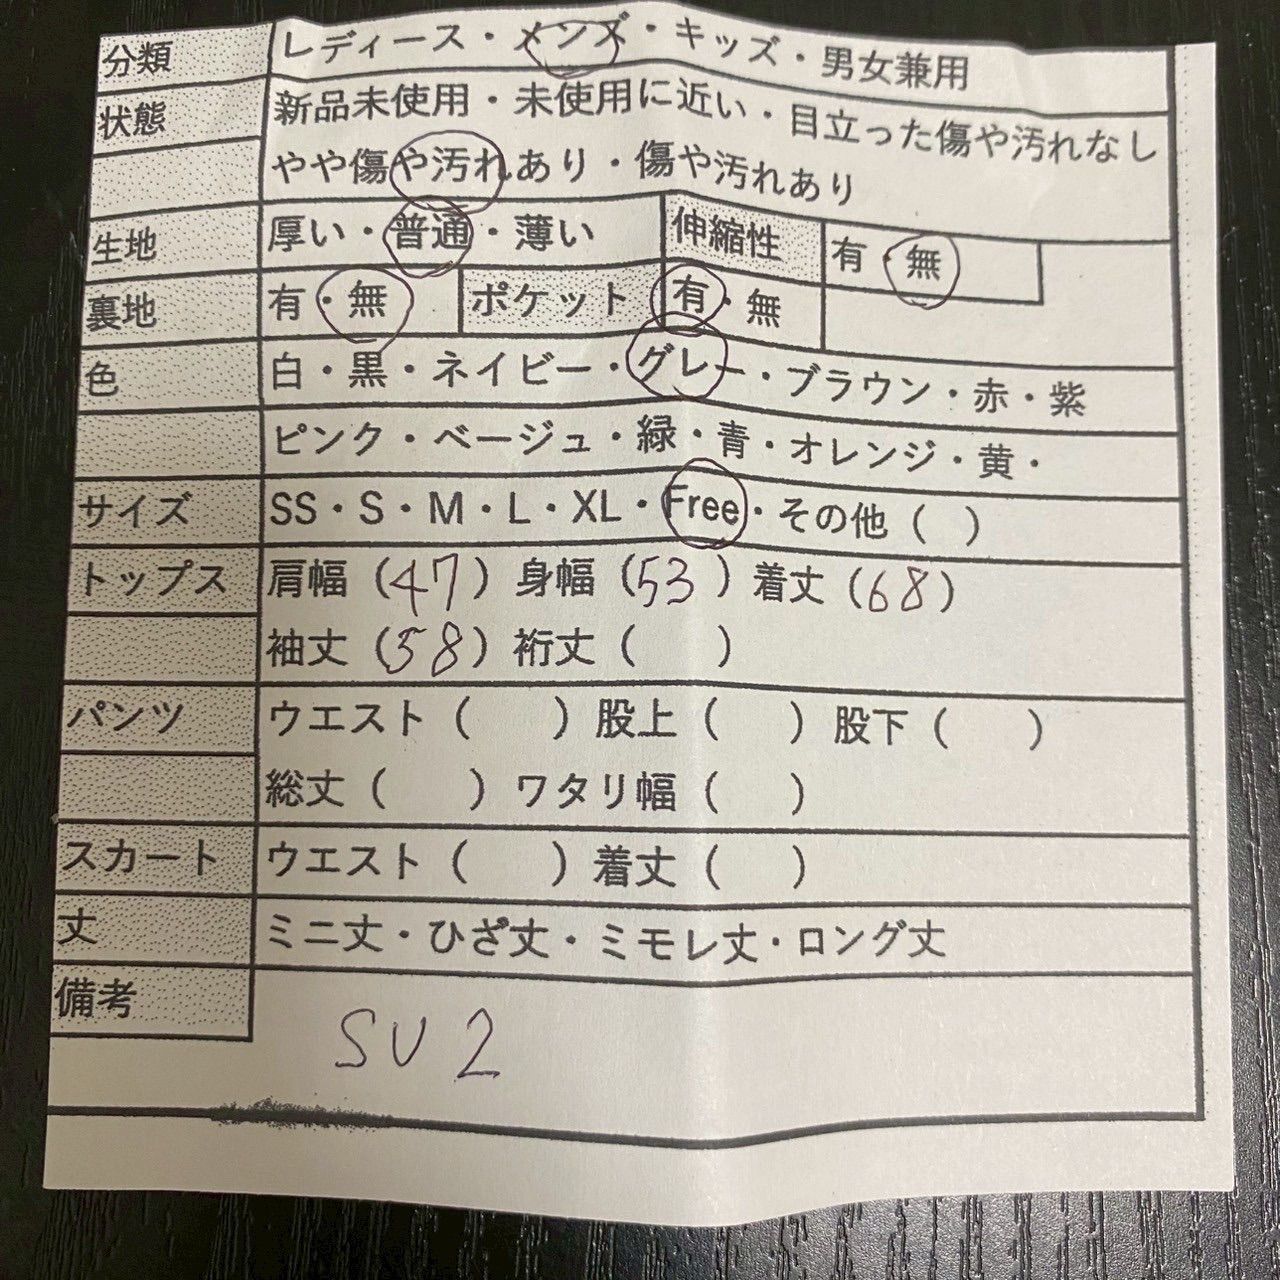 分類 レディース・メンズ・キッズ・男女兼用
状態 新品未使用・未使用に近い・目立った傷や汚れなし
やや傷や汚れあり・傷や汚れあり
生地 厚い・普通・薄い 伸縮性 有・無
裏地 有・無 ポケット 有・無
色 白・黒・ネイビー・グレー・ブラウン・赤・紫
ピンク・ベージュ・緑・青・オレンジ・黄・
サイズ SS・S・M・L・XL・Free・その他（ ）
トップス 肩幅（47）身幅（53）着丈（68）
袖丈（58）裄丈（ ）
パンツ ウエスト（ ）股上（ ）股下（ ）
総丈（ ）ワタリ幅（ ）
スカート ウエスト（ ）着丈（ ）
丈 ミニ丈・ひざ丈・ミモレ丈・ロング丈
備考
SU2